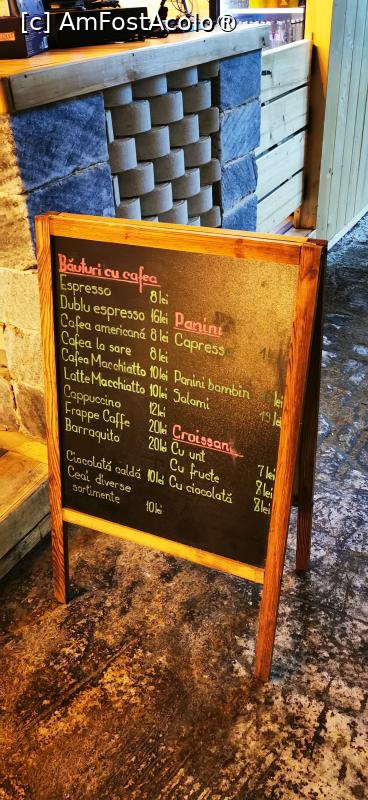 [c] AmFostAcolo®
Băuturi cu cafea
Espresso 8 lei
Dublu espresso 16 lei
Cafea americană 8 lei
Cafea la sare 8 lei
Cafea Macchiatto 10 lei
Latte Macchiatto 10 lei
Cappuccino 12 lei
Frappe Caffe 20 lei
Barraquito 20 lei
Ciocolată caldă 10 lei
Ceai diverse
sortimente 10 lei
Panini
Capress
Panini bambin lei
Salami lei
Croissan
Cu unt 7 lei
Cu fructe 8 lei
Cu ciocolată 8 lei